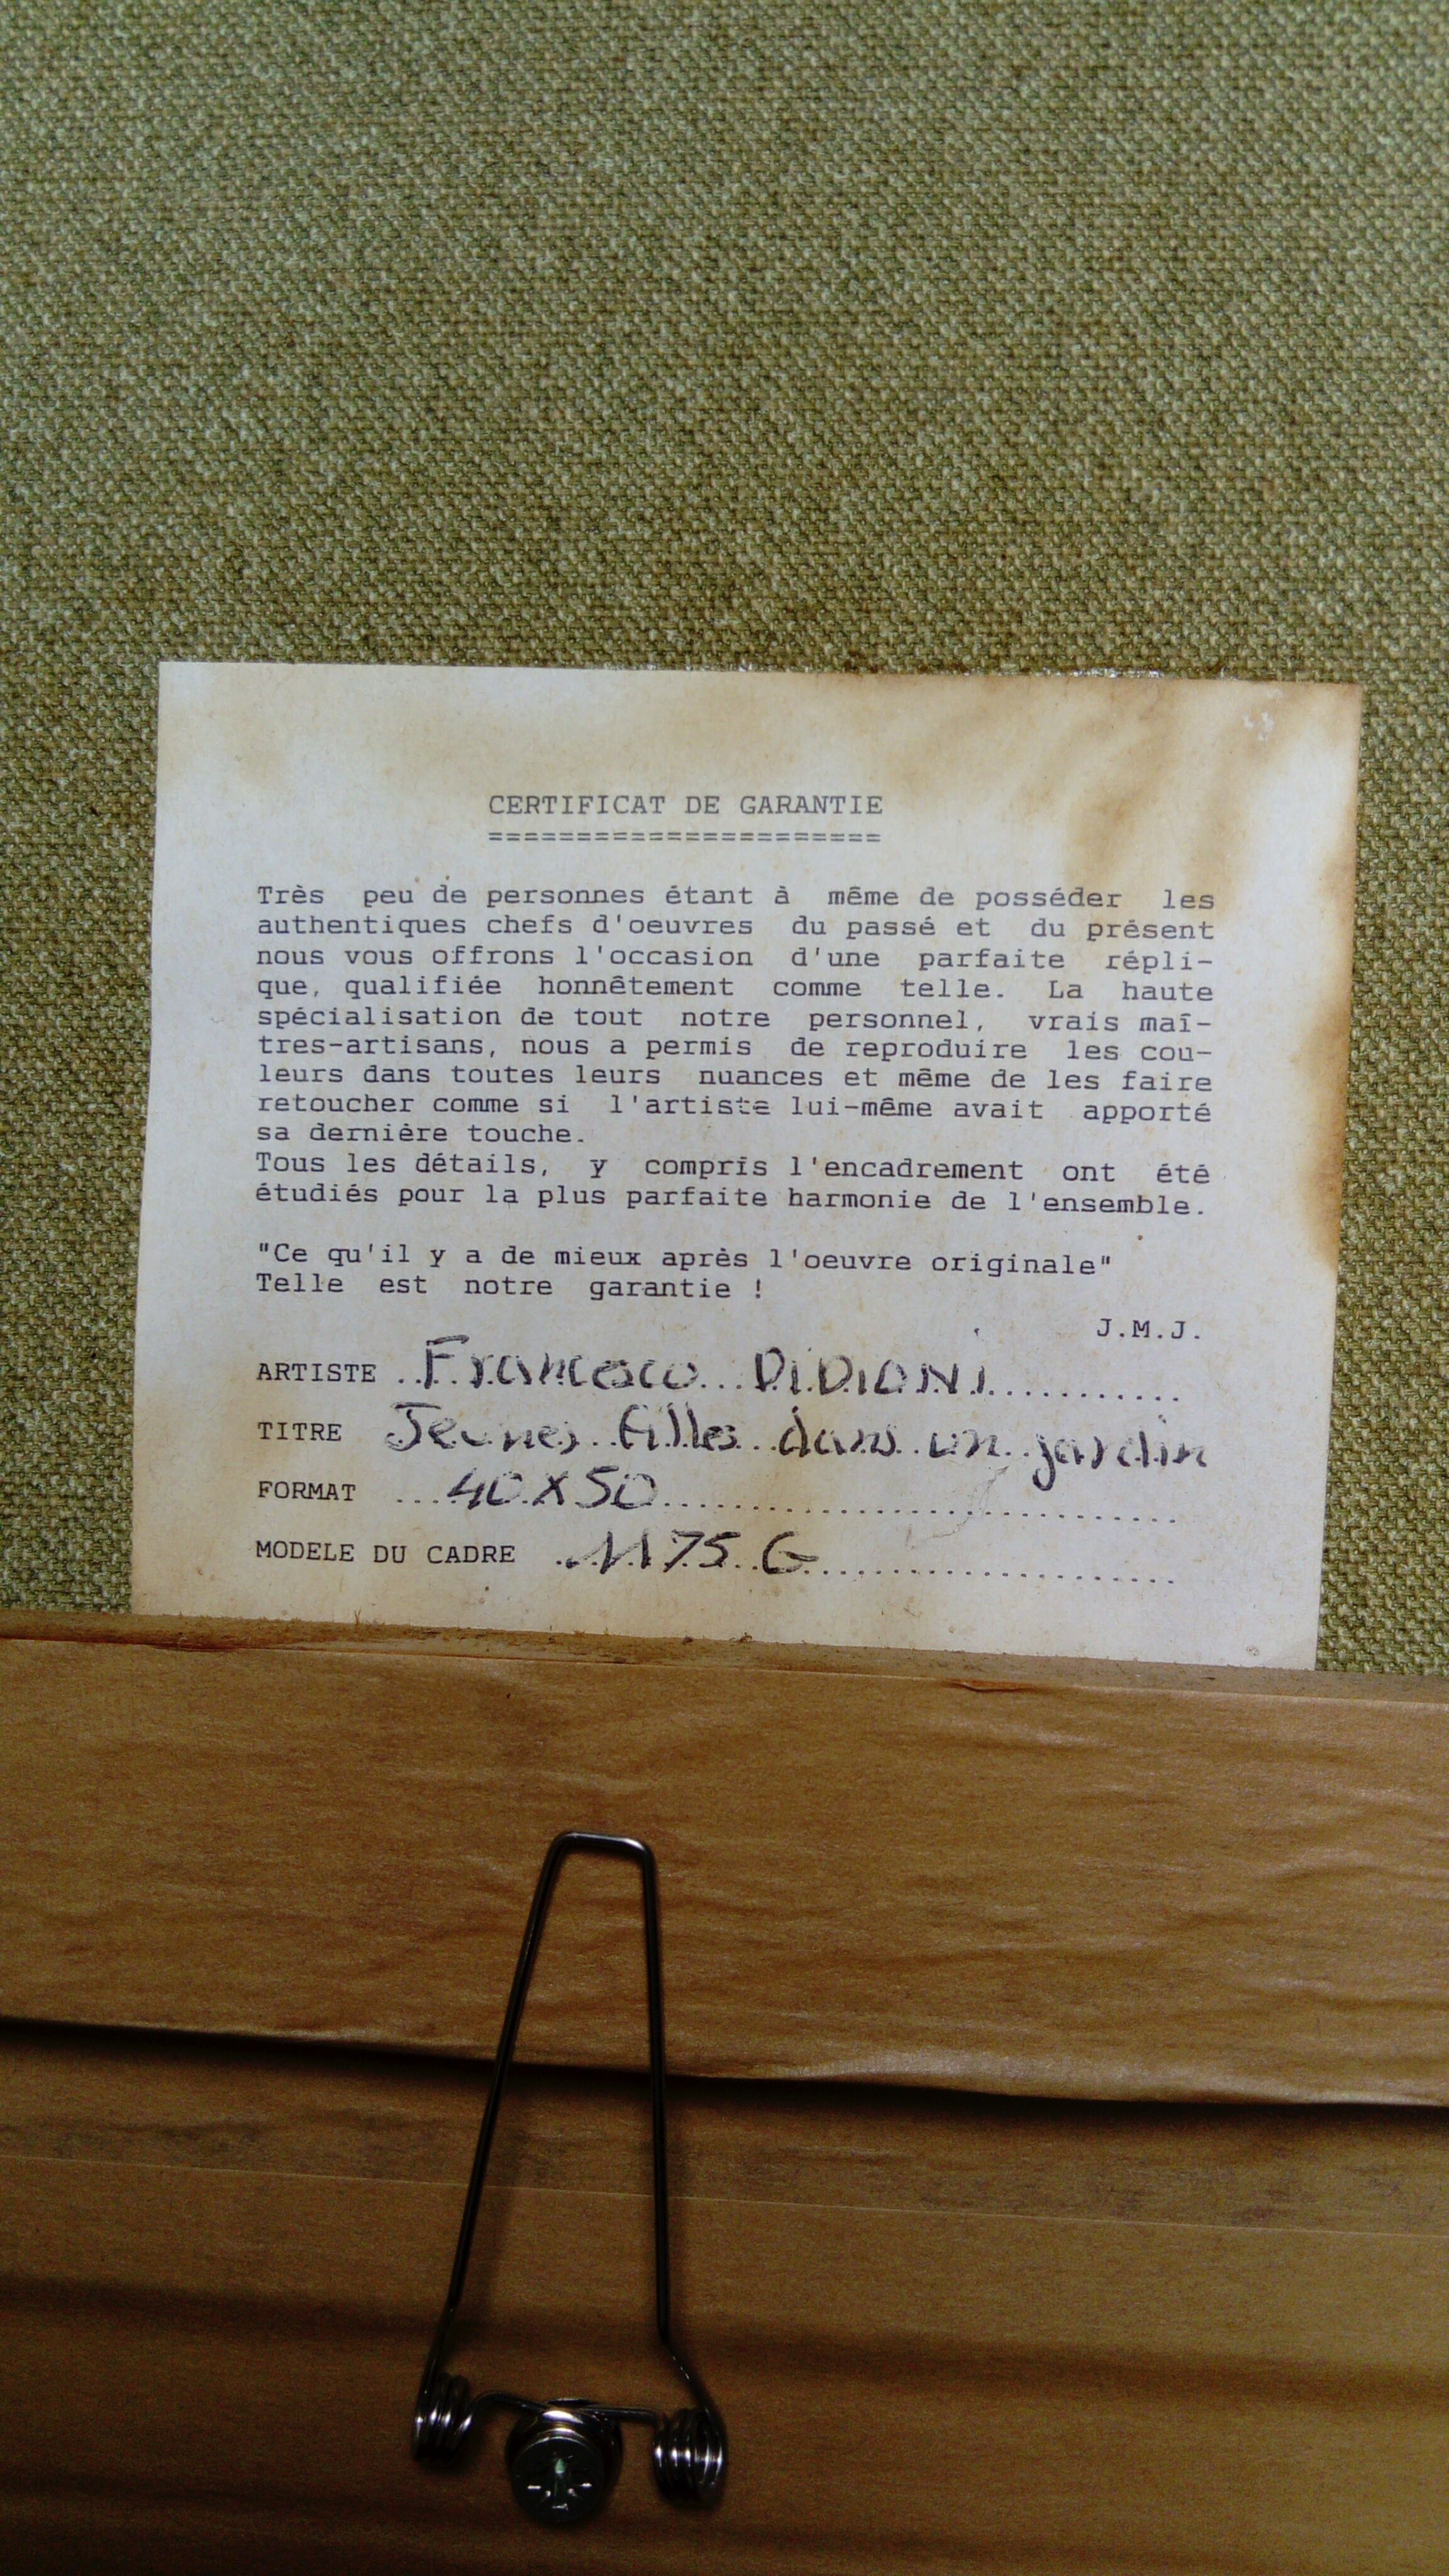 CERTIFICAT DE GARANTIE
======================
Très peu de personnes étant à même de posséder les
authentiques chefs d'oeuvres du passé et du présent
nous vous offrons l'occasion d'une parfaite répli-
que, qualifiée honnêtement comme telle. La haute
spécialisation de tout notre personnel, vrais maî-
tres-artisans, nous a permis de reproduire les cou-
leurs dans toutes leurs nuances et même de les faire
retoucher comme si l'artiste lui-même avait apporté
sa dernière touche.
Tous les détails, y compris l'encadrement ont été
étudiés pour la plus parfaite harmonie de l'ensemble.
"Ce qu'il y a de mieux après l'oeuvre originale"
Telle est notre garantie !
J.M.J.
ARTISTE Francesco DIDIONI
TITRE Jeunes filles dans un jardin
FORMAT 40 X 50
MODELE DU CADRE 1175 G